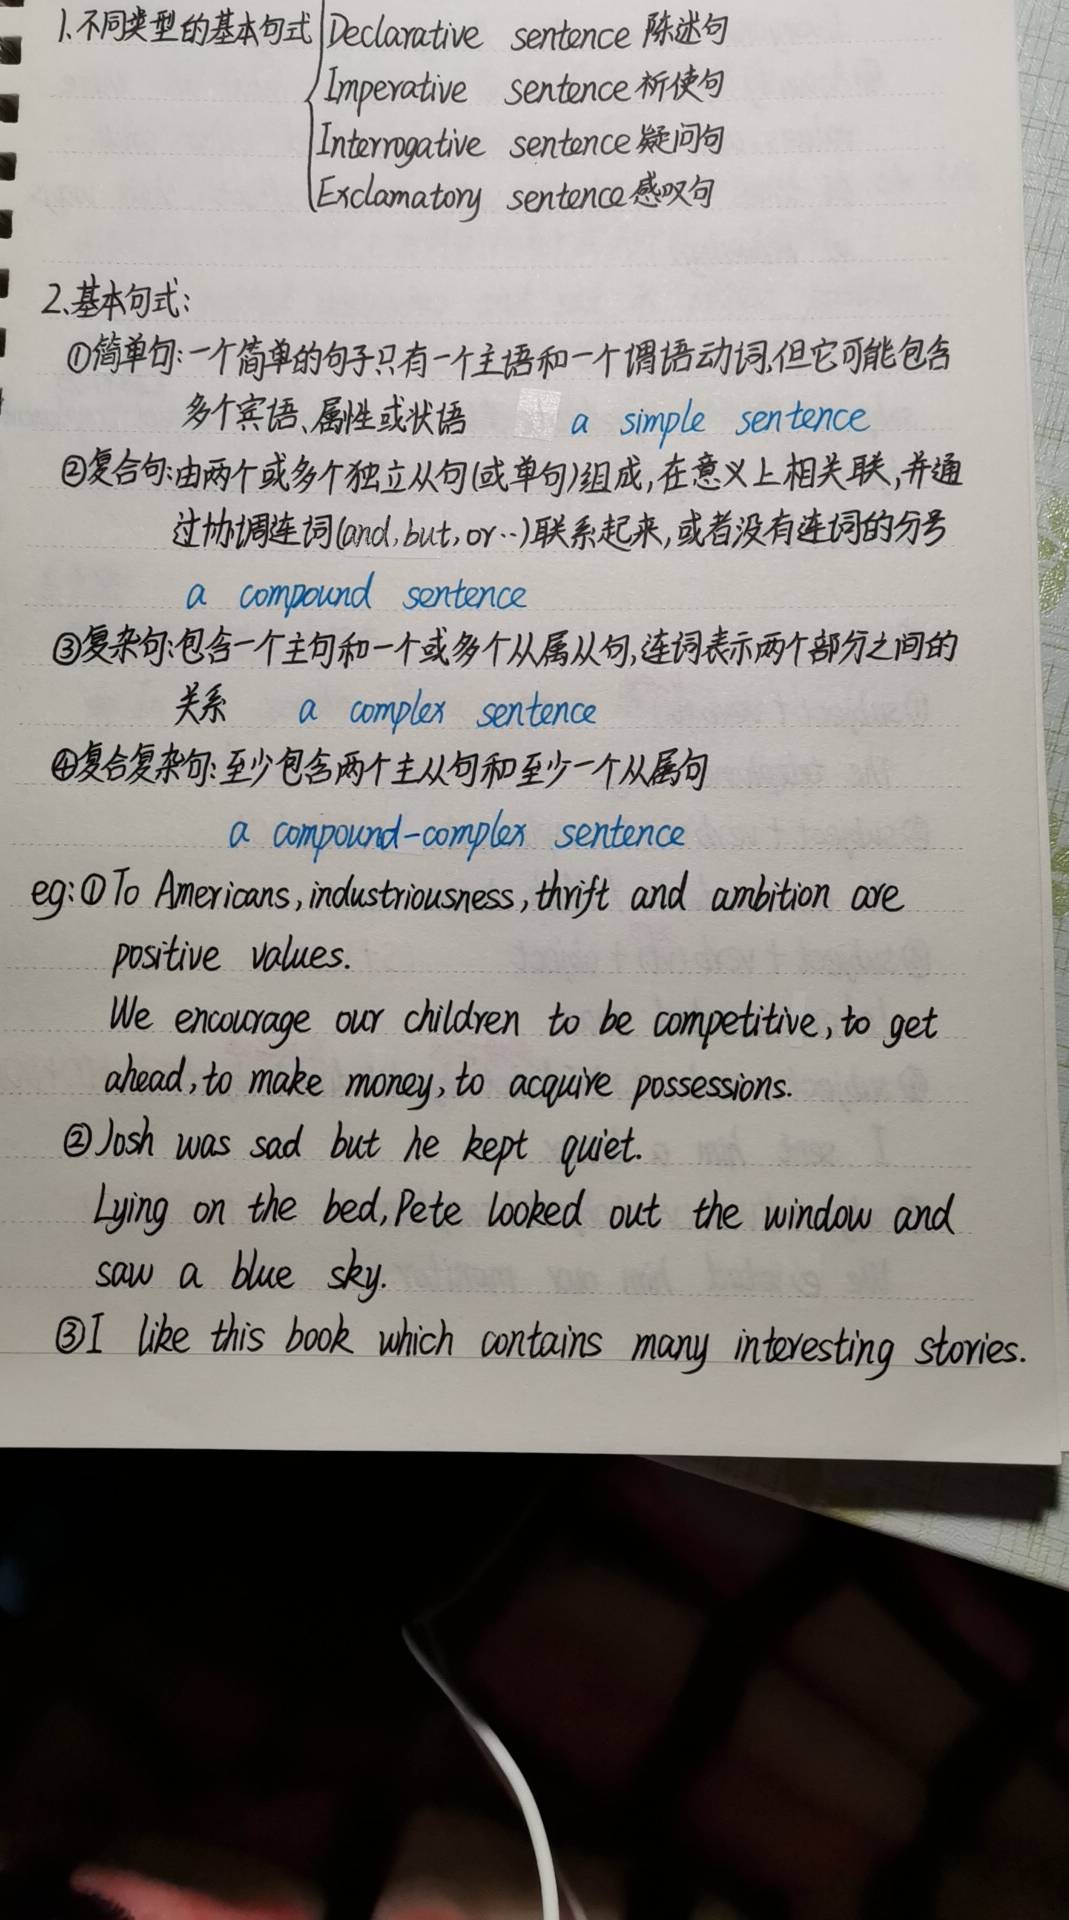 1、不同类型的基本句式 Declarative sentence 陈述句
Imperative sentence 祈使句
Interrogative sentence 疑问句
Exclamatory sentence 感叹句
2、基本句式:
①简单句:一个简单的句子只有一个主语和一个谓语动词,但它可能包含
多个宾语、属性或状语 a simple sentence
②复合句:由两个或多个独立从句(或单句)组成,在意义上相关联,并通
过协调连词(and,but,or··)联系起来,或者没有连词的分号
a compound sentence
③复杂句:包含一个主句和一个或多个从属从句,连词表示两个部分之间的
关系 a complex sentence
④复合复杂句:至少包含两个主从句和至少一个从属句
a compound-complex sentence
eg:①To Americans,industriousness,thrift and ambition are
positive values.
We encourage our children to be competitive,to get
ahead,to make money,to acquire possessions.
②Josh was sad but he kept quiet.
Lying on the bed,Pete looked out the window and
saw a blue sky.
③I like this book which contains many interesting stories.